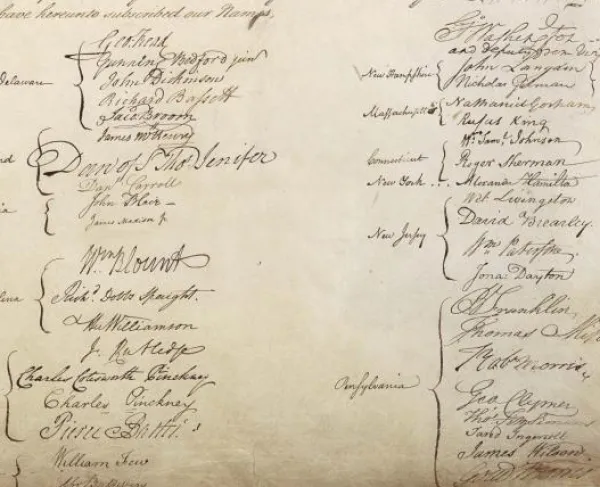 have hereunto subscribed our Names,
Delaware
Geo: Read
Gunning Bedford jun
John Dickinson
Richard Bassett
Jaco: Broom
James McHenry
Dan of St Thos Jenifer
Danl Carroll
John Blair –
James Madison Jr
Wm Blount
Richd. Dobbs Spaight.
Hu Williamson
J. Rutledge
Charles Cotesworth Pinckney
Charles Pinckney
Pierce Butler.
William Few
Go. Washington
and deputy from
New Hampshire
John Langdon
Nicholas Gilman
Massachusetts
Nathaniel Gorham
Rufus King
Connecticut
Wm. Saml. Johnson
Roger Sherman
New York . . . Alexander Hamilton
New Jersey
Wil: Livingston
David Brearley.
Wm. Paterson.
Jona: Dayton
Pensylvania
B Franklin
Thomas
Robt Morris
Geo. Clymer
Thos. FitzSimons
Jared Ingersoll
James Wilson